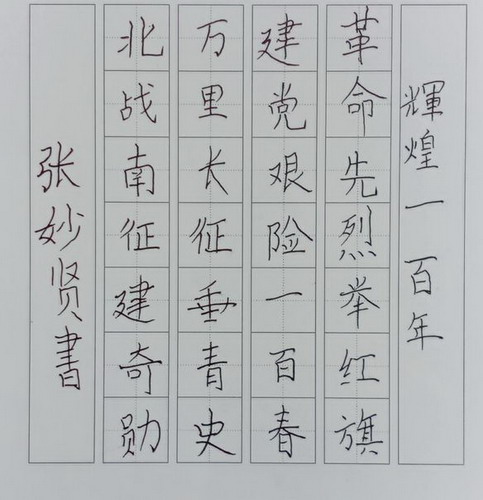 輝煌一百年
革命先烈举红旗
建党艰险一百春
万里长征垂青史
北战南征建奇勋
张妙贤書